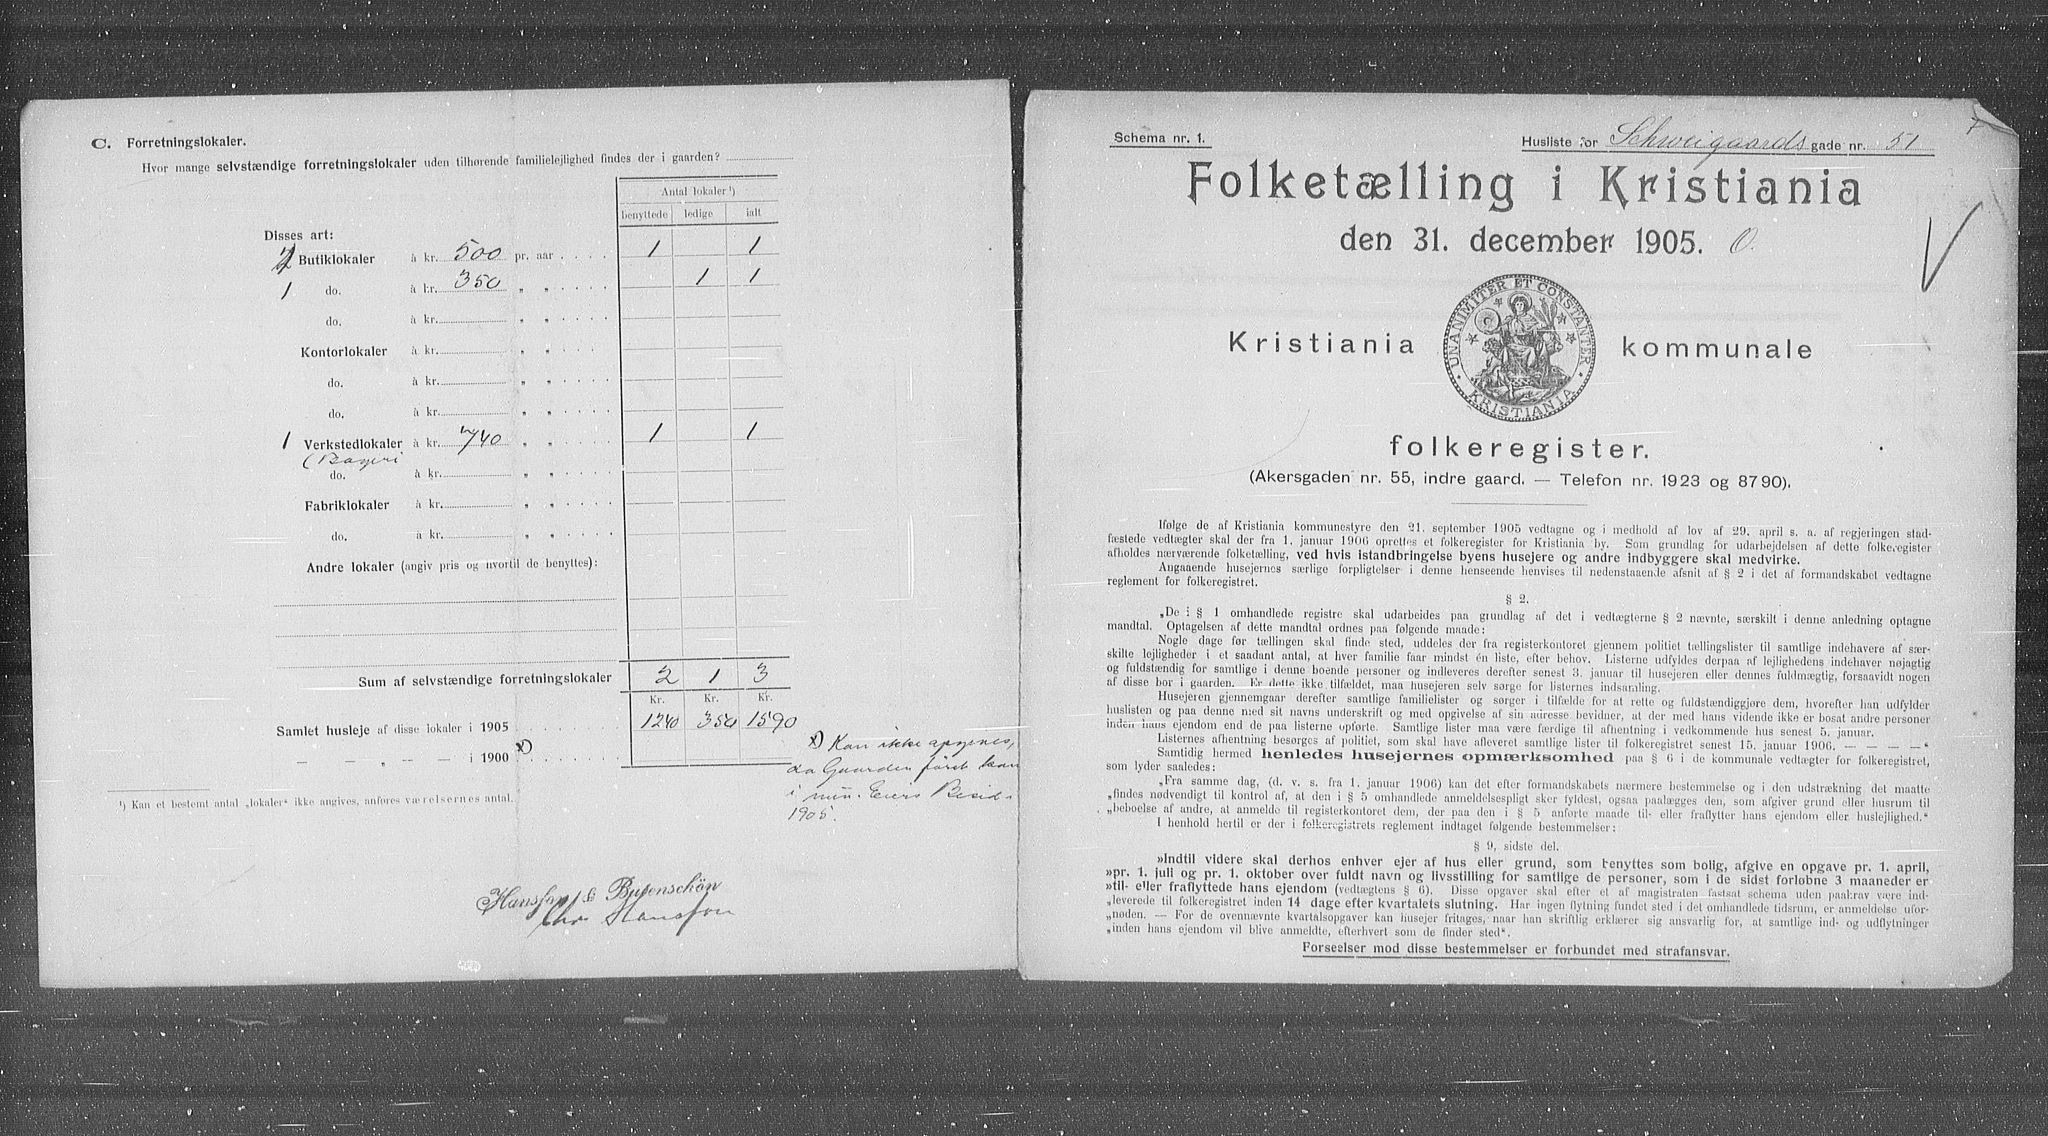 C. Forretningslokaler.
Hvor mange selvstændige forretningslokaler uden tilhørende familielejlighed findes der i gaarden?
Antal lokaler ¹)
benyttede ledige ialt
Disses art:
Butiklokaler à kr. 500 pr. aar 1 1
1 do. à kr. 350 „ „ 1 1
do. à kr. „ „
Kontorlokaler à kr. „ „
do. à kr. „ „
do. à kr. „ „
1 Verkstedlokaler à kr. 740 „ „ 1 1
(Bageri
do. à kr. „ „
Fabriklokaler à kr. „ „
do. à kr. „ „
Andre lokaler (angiv pris og hvortil de benyttes):
Sum af selvstændige forretningslokaler 2 1 3
Kr. Kr. Kr.
Samlet husleje af disse lokaler i 1905 1240 350 1590
— — „ — — i 1900 x)
x) Kan ikke opgives,
da Gaarden først kom
i min Eiers Besid-
1905.
¹) Kan et bestemt antal „lokaler“ ikke angives, anføres værelsernes antal.
Hansson & Busenschön
Chr Hansson
Schema nr. 1.
Husliste for Schweigaards gade nr. 51
7
Folketælling i Kristiania
den 31. december 1905. O.
V
UNANIMITER ET CONSTANTER
KRISTIANIA
Kristiania kommunale
folkeregister.
(Akersgaden nr. 55, indre gaard. — Telefon nr. 1923 og 8790).
Ifølge de af Kristiania kommunestyre den 21. september 1905 vedtagne og i medhold af lov af 29. april s. a. af regjeringen stad-
fæstede vedtægter skal der fra 1. januar 1906 oprettes et folkeregister for Kristiania by. Som grundlag for udarbejdelsen af dette folkeregister
afholdes nærværende folketælling, ved hvis istandbringelse byens husejere og andre indbyggere skal medvirke.
Angaaende husejernes særlige forpligtelser i denne henseende henvises til nedenstaaende afsnit af § 2 i det af formandskabet vedtagne
reglement for folkeregistret.
§ 2.
„De i § 1 omhandlede registre skal udarbeides paa grundlag af det i vedtægterne § 2 nævnte, særskilt i denne anledning optagne
mandtal. Optagelsen af dette mandtal ordnes paa følgende maade:
Nogle dage før tællingen skal finde sted, uddeles der fra registerkontoret gjennem politiet tællingslister til samtlige indehavere af sær-
skilte lejligheder i et saadant antal, at hver familie faar mindst én liste, efter behov. Listerne udfyldes derpaa af lejlighedens indehaver nøjagtig
og fuldstændig for samtlige i denne boende personer og indleveres derefter senest 3. januar til husejeren eller dennes fuldmægtig, forsaavidt nogen
af disse bor i gaarden. Er dette ikke tilfældet, maa husejeren selv sørge for listernes indsamling.
Husejeren gjennemgaar derefter samtlige familielister og sørger i tilfælde for at rette og fuldstændiggjøre dem, hvorefter han udfylder
huslisten og paa denne med sit navns underskrift og med opgivelse af sin adresse bevidner, at der med hans vidende ikke er bosat andre personer
inden hans ejendom end de paa listerne opførte. Samtlige lister maa være færdige til afhentning i vedkommende hus senest 5. januar.
Listernes afhentning besørges af politiet, som skal have afleveret samtlige lister til folkeregistret senest 15. januar 1906. — — — —“
Samtidig hermed henledes husejernes opmærksomhed paa § 6 i de kommunale vedtægter for folkeregistret,
som lyder saaledes:
„Fra samme dag, (d. v. s. fra 1. januar 1906) kan det efter formandskabets nærmere bestemmelse og i den udstrækning det maatte
„findes nødvendigt til kontrol af, at den i § 5 omhandlede anmeldelsespligt sker fyldest, ogsaa paalægges den, som afgiver grund eller husrum til
„beboelse af andre, at anmelde til registerkontoret dem, der paa den i § 5 anførte maade til- eller fraflytter hans ejendom eller huslejlighed.“
I henhold hertil er der i folkeregistrets reglement indtaget følgende bestemmelser:
§ 9, sidste del.
»Indtil videre skal derhos enhver ejer af hus eller grund, som benyttes som bolig, afgive en opgave pr. 1. april,
»pr. 1. juli og pr. 1. oktober over fuldt navn og livsstilling for samtlige de personer, som i de sidst forløbne 3 maaneder er
»til- eller fraflyttede hans ejendom (vedtægtens § 6). Disse opgaver skal efter et af magistraten fastsat schema uden paakrav være ind-
„leverede til folkeregistret inden 14 dage efter kvartalets slutning. Har ingen flytning fundet sted i det omhandlede tidsrum, er anmeldelse ufor-
„nøden. — For de ovennævnte kvartalsopgaver kan husejer fritages, naar han skriftlig erklærer sig ansvarlig for, at samtlige ind- og udflytninger
„inden hans ejendom vil blive anmeldte, efterhvert som de finder sted“.
Forseelser mod disse bestemmelser er forbundet med strafansvar.